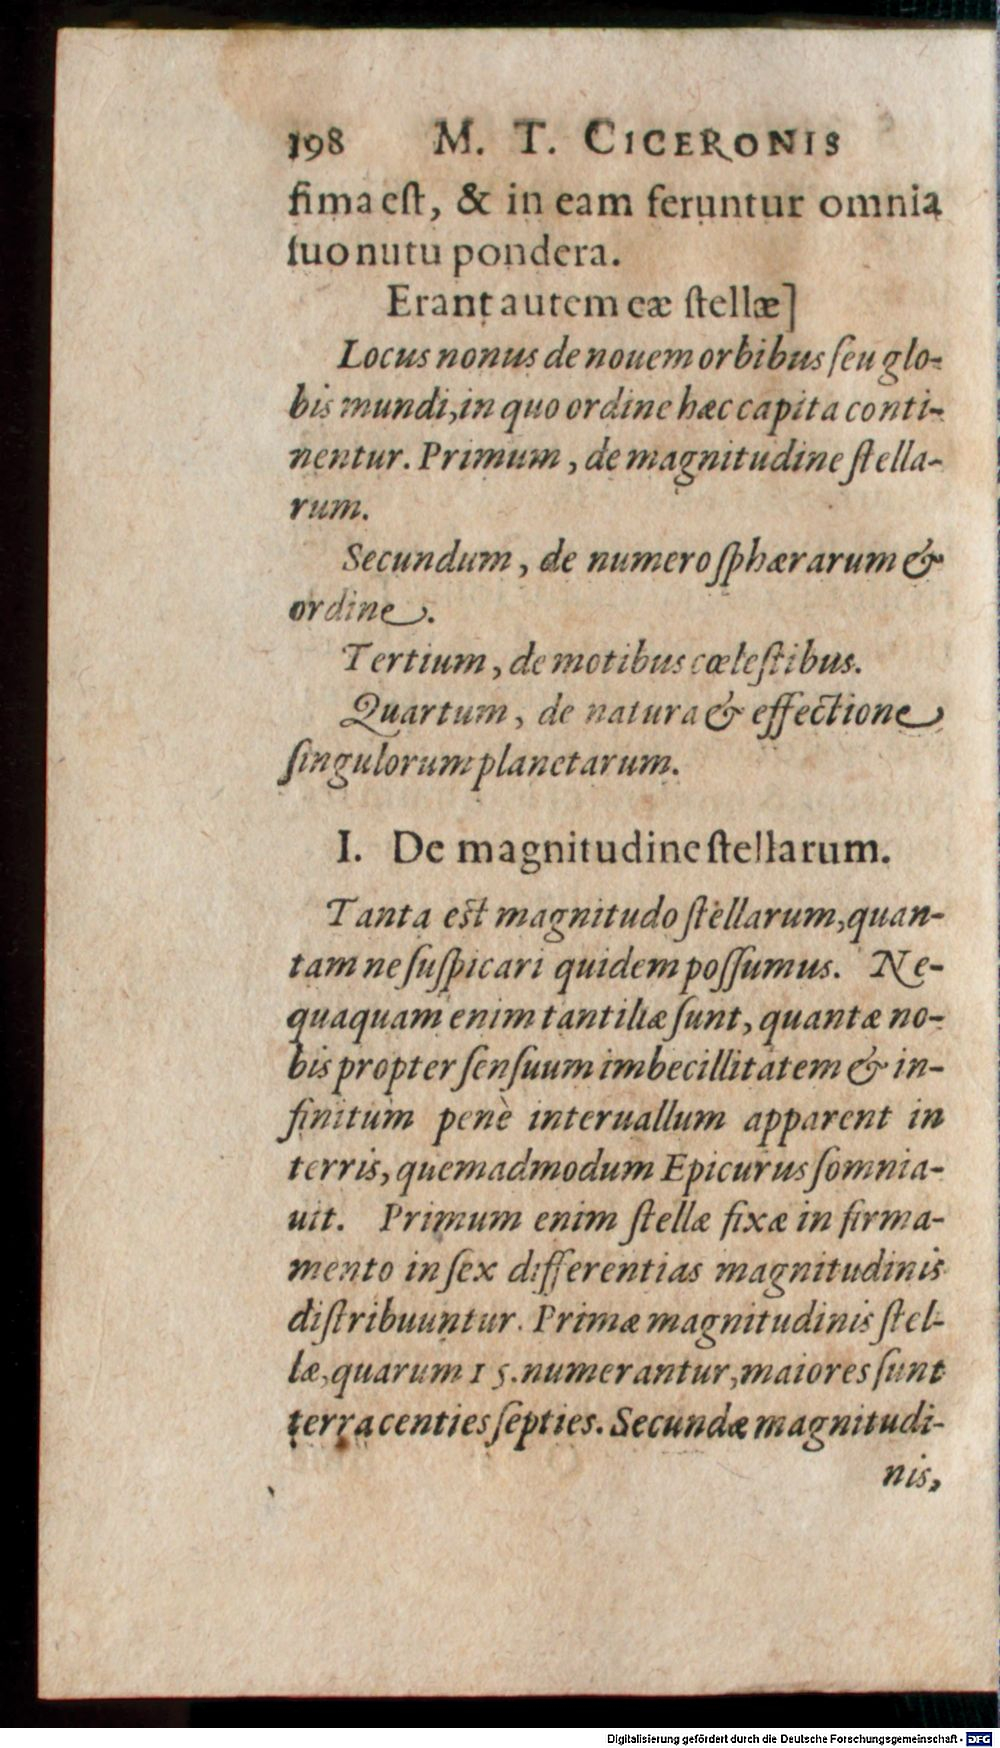 198 M. T. CICERONIS
ſima eſt, & in eam feruntur omnia
ſuo nutu pondera.
Erant autem eæ ſtellæ]
Locus nonus de nouem orbibus ſeu glo-
bis mundi, in quo ordine hæc capita conti-
nentur. Primum, de magnitudine ſtella-
rum.
Secundum, de numero ſphærarum &
ordine.
Tertium, de motibus cœleſtibus.
Quartum, de natura & effectione
ſingulorum planetarum.
I. De magnitudine ſtellarum.
Tanta eſt magnitudo ſtellarum, quan-
tam ne ſuſpicari quidem poſſumus. Ne-
quaquam enim tantillæ ſunt, quantæ no-
bis propter ſenſuum imbecillitatem & in-
finitum penè interuallum apparent in
terris, quemadmodum Epicurus ſomnia-
uit. Primum enim ſtellæ fixæ in firma-
mento in ſex differentias magnitudinis
diſtribuuntur. Primæ magnitudinis ſtel-
læ, quarum 15. numerantur, maiores ſunt
terra centies ſepties. Secundæ magnitudi-
nis,
Digitalisierung gefördert durch die Deutsche Forschungsgemeinschaft - DFG